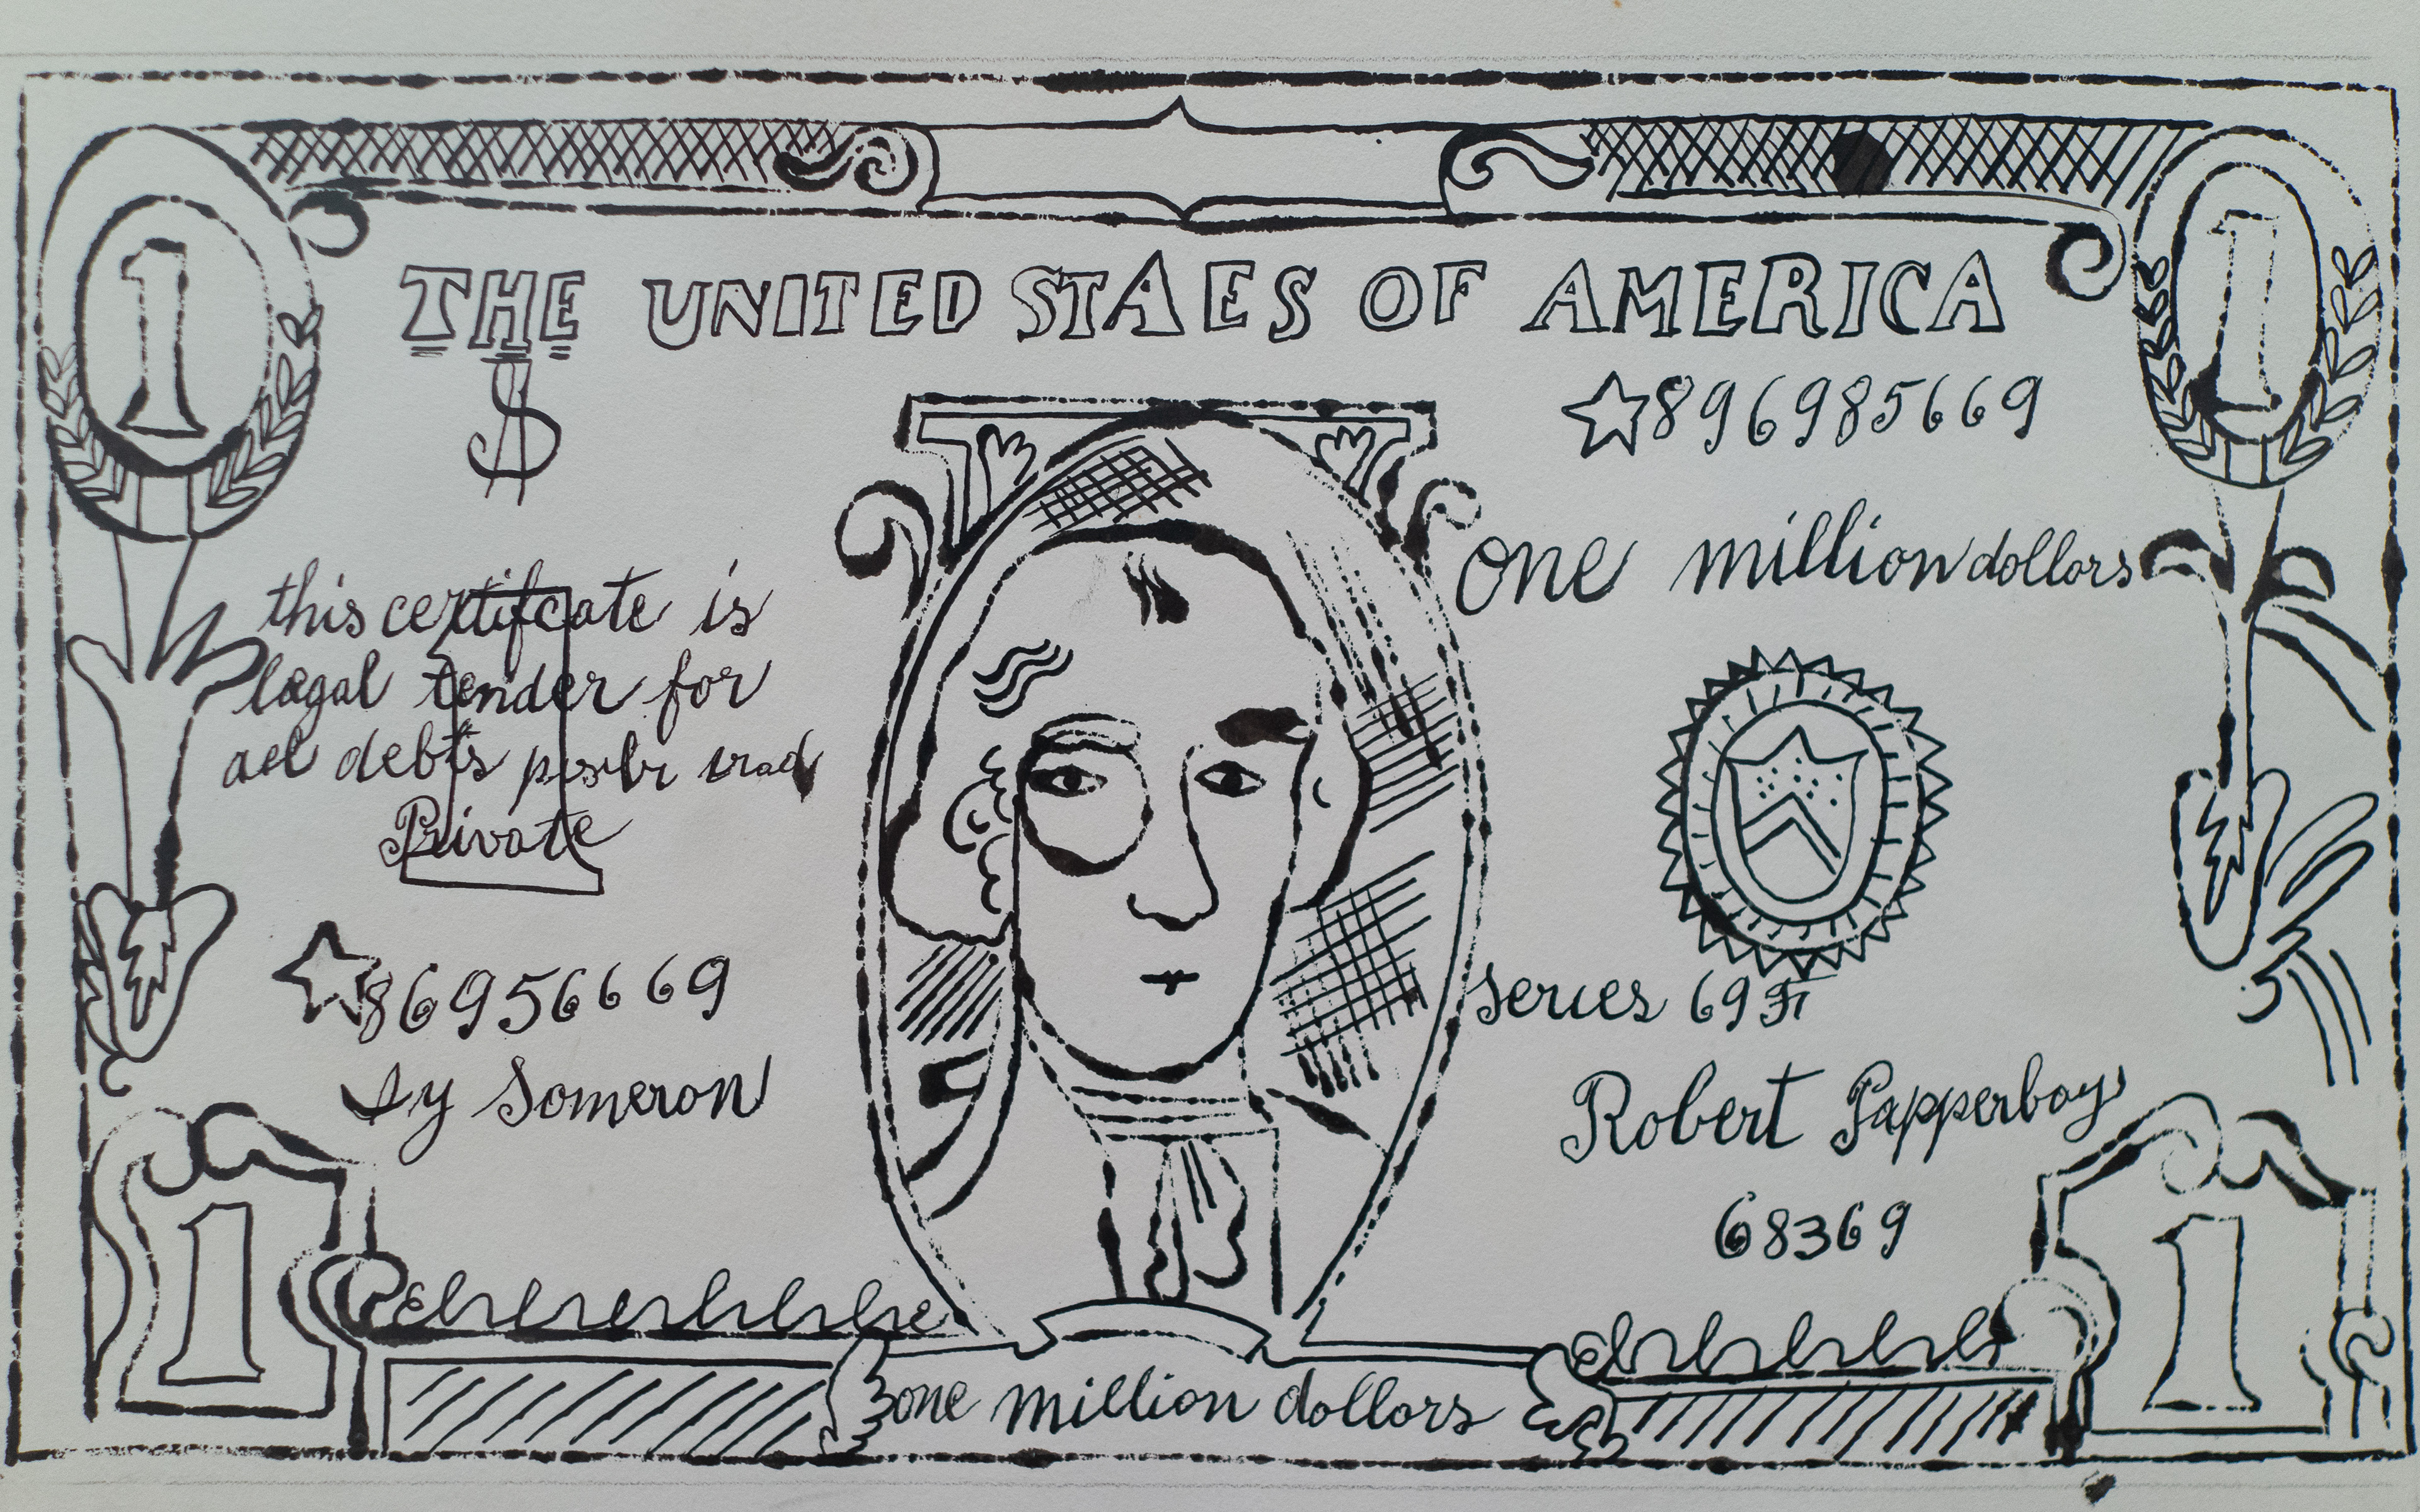 1
1
THE UNITED STAES OF AMERICA
$
896985669
one million dollars
this certifcate is
legal tender for
ael debts
Private
86956669
series 69
Sy Someron
Robert Papperboy
68369
1
1
one million dollors